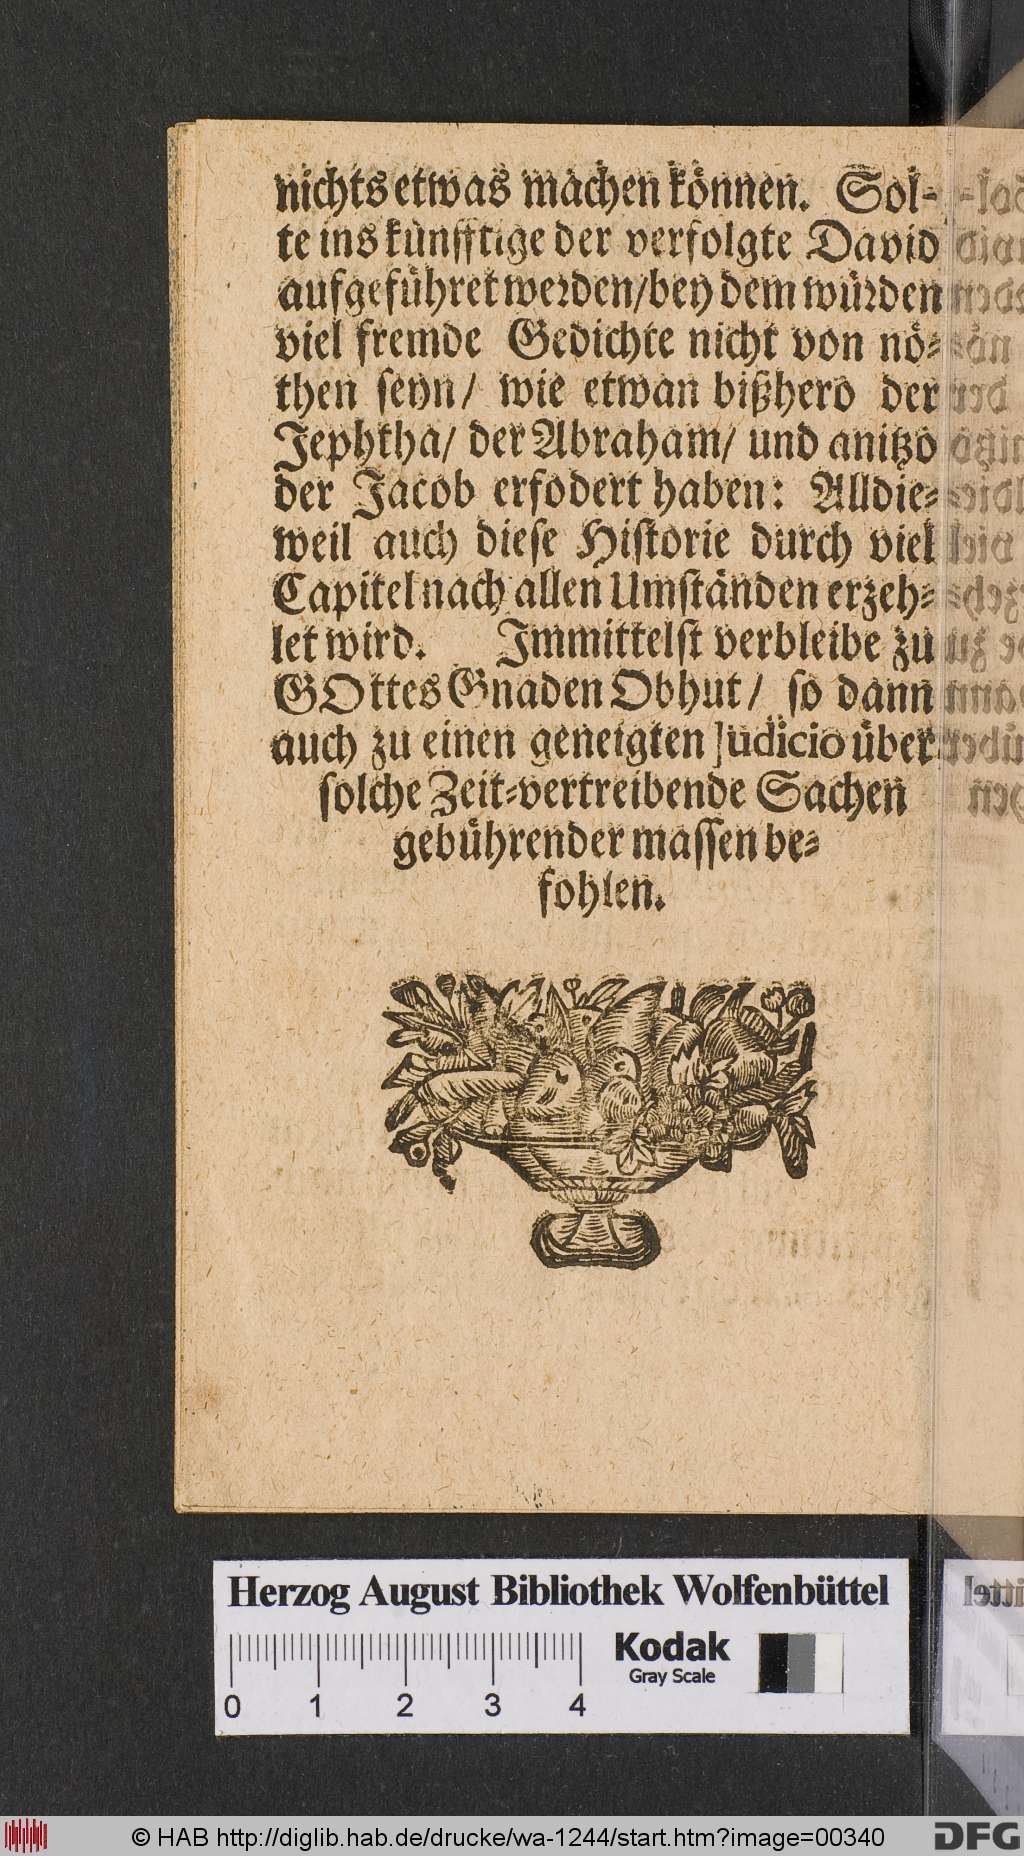 nichts etwas machen können. Sol-
te ins künfftige der verfolgte David
aufgeführet werden/bey dem würden
viel fremde Gedichte nicht von nö-
then seyn/ wie etwan bißhero der
Jephtha/ der Abraham/ und anitzo
der Jacob erfodert haben: Alldie-
weil auch diese Historie durch viel
Capitel nach allen Umständen erzeh-
let wird. Immittelst verbleibe zu
GOttes Gnaden Obhut/ so dann
auch zu einen geneigten Judicio über
solche Zeit-vertreibende Sachen
gebührender massen be-
fohlen.
Herzog August Bibliothek Wolfenbüttel
Kodak
Gray Scale
0 1 2 3 4
© HAB http://diglib.hab.de/drucke/wa-1244/start.htm?image=00340
DFG